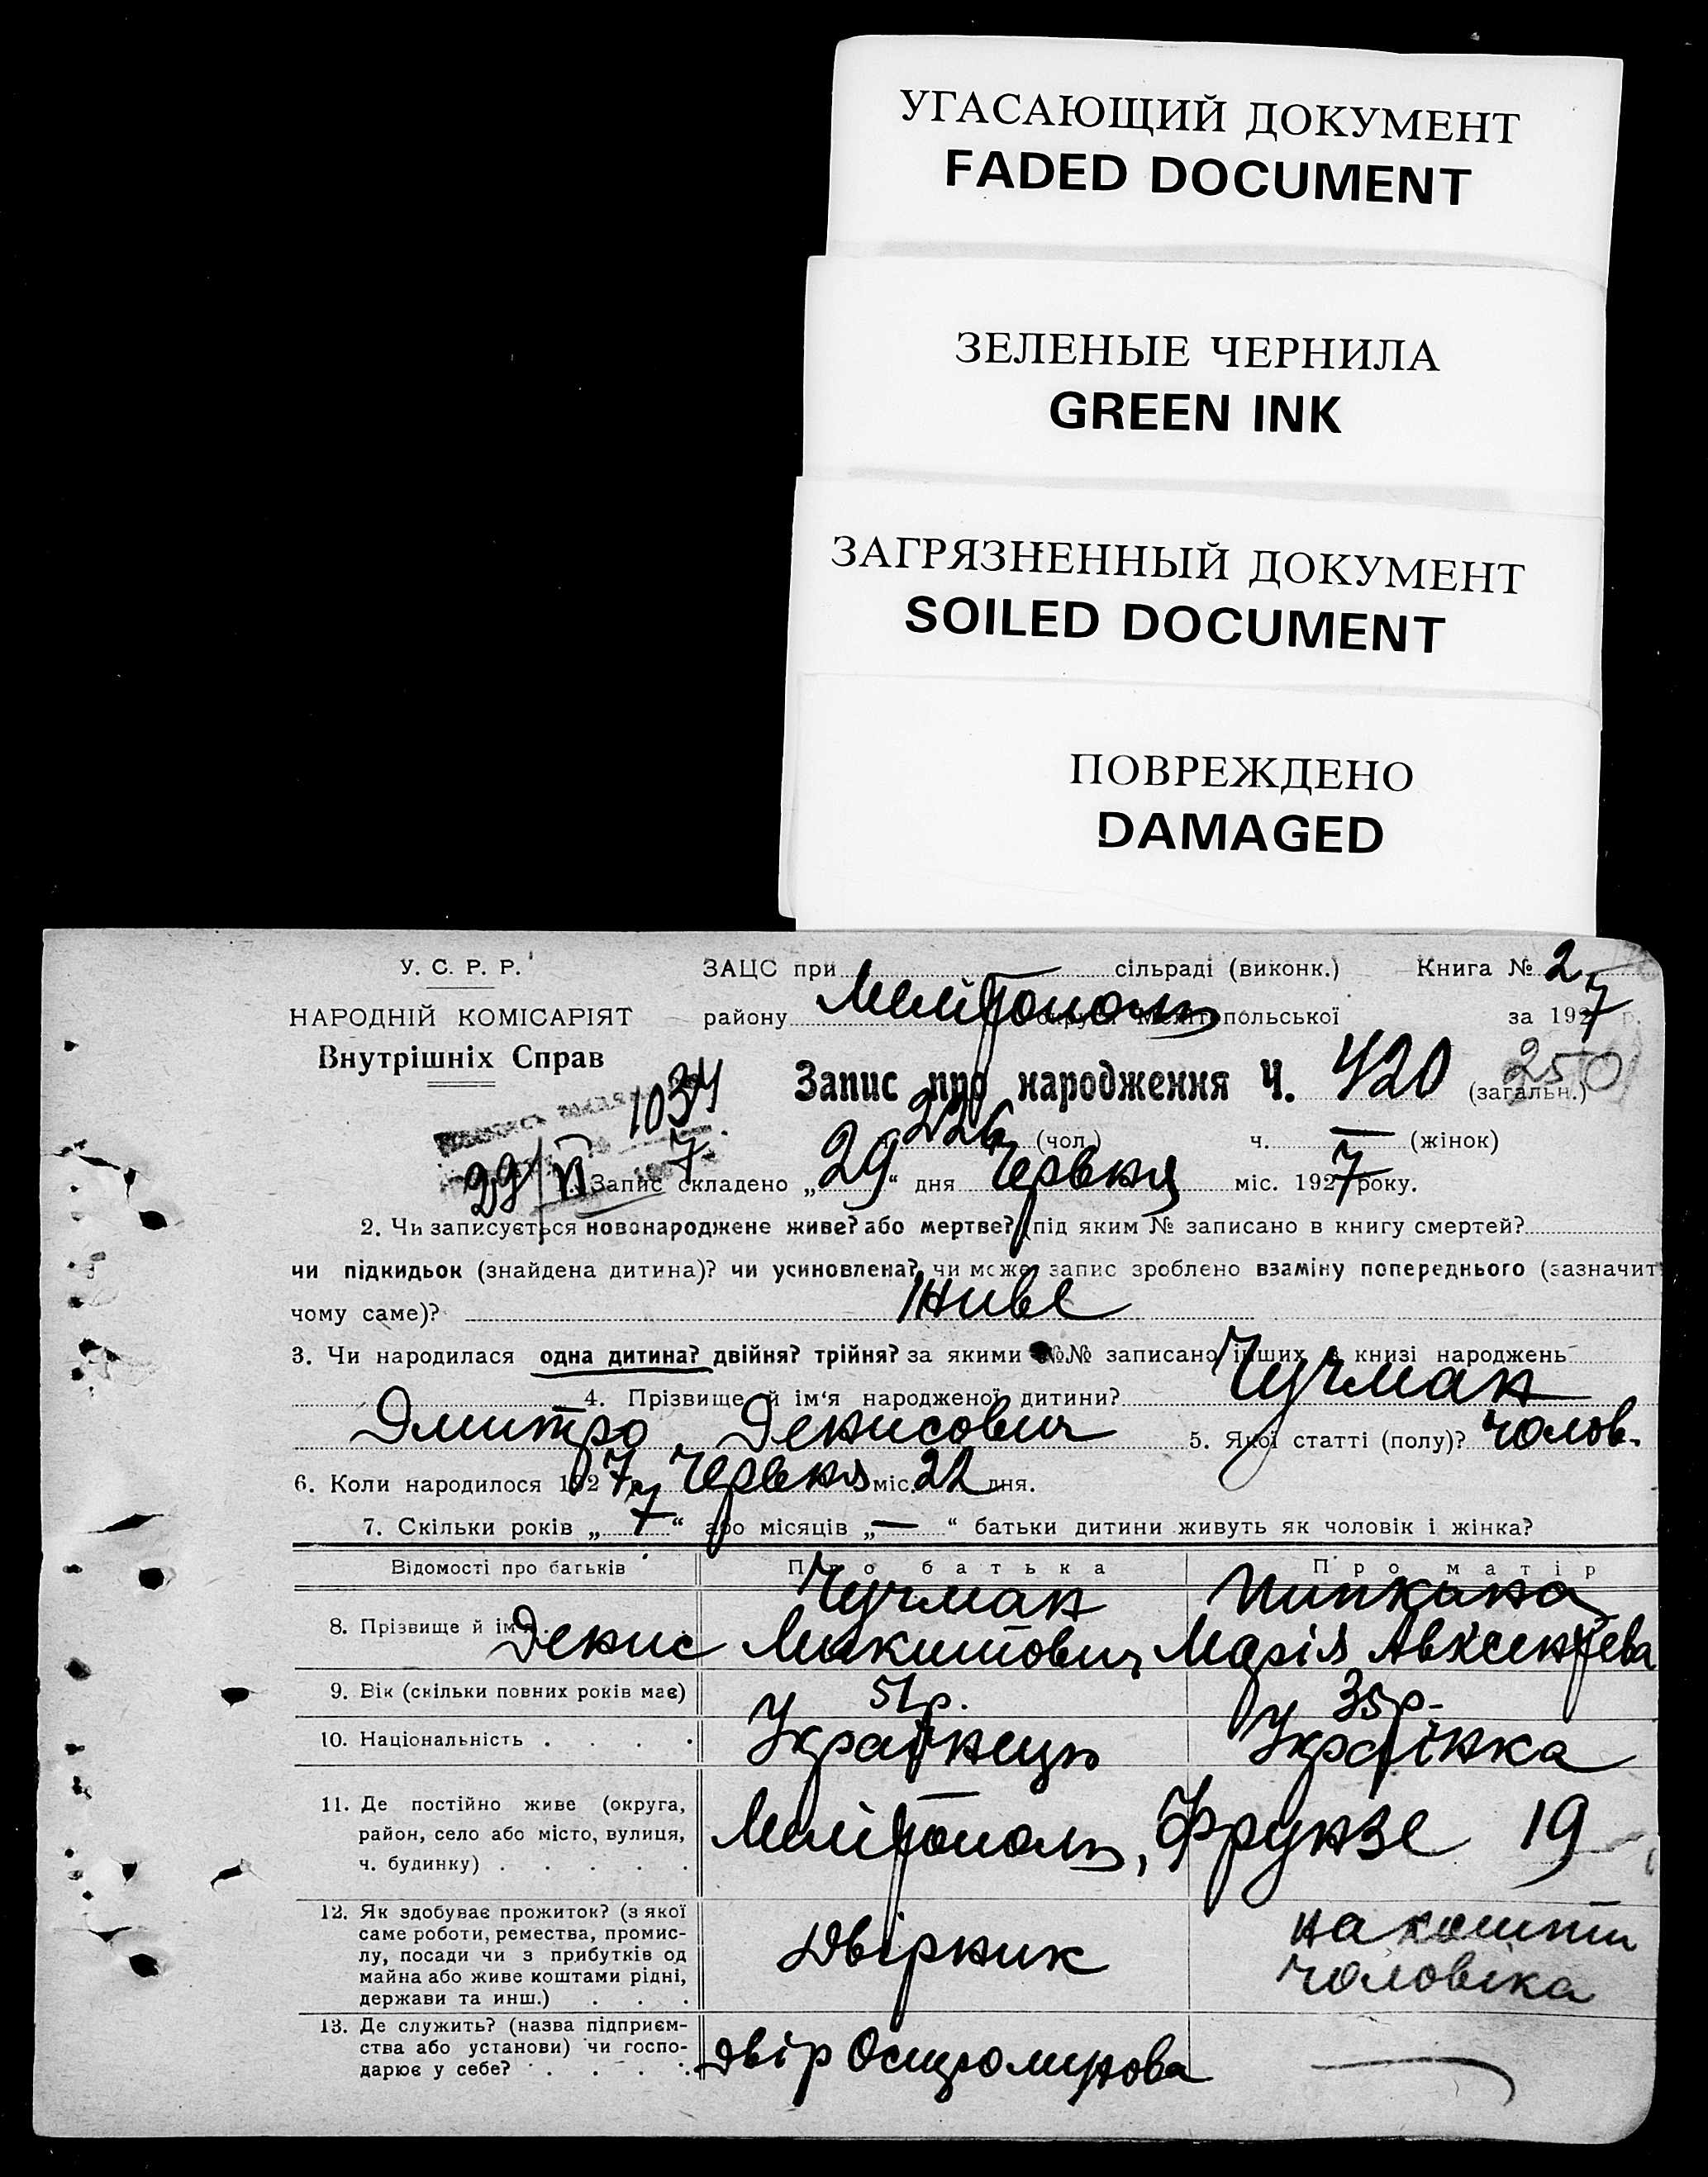 УГАСАЮЩИЙ ДОКУМЕНТ
FADED DOCUMENT
ЗЕЛЕНЫЕ ЧЕРНИЛА
GREEN INK
ЗАГРЯЗНЕННЫЙ ДОКУМЕНТ
SOILED DOCUMENT
ПОВРЕЖДЕНО
DAMAGED
У. С. Р. Р.
НАРОДНІЙ КОМІСАРІЯТ
Внутрішніх Справ
ЗАЦС при сільраді (виконк.) Книга № 2
району Мелітополь округи Мелітопольської за 1927 р.
1034 Запис про народження Ч. 420 (загальн.) 250
226 (чол.) ч. — (жінок)
29/VI 7. Запис складено „29“ дня Червня міс. 1927 року.
2. Чи записується новонароджене живе? або мертве? (під яким № записано в книгу смертей?
чи підкидьок (знайдена дитина)? чи усиновлена? чи може запис зроблено взаміну попереднього (зазначит
чому саме)? Живе
3. Чи народилася одна дитина? двійня? трійня? за якими №№ записано інших в книзі народжень
4. Прізвище й ім‘я народженої дитини? Чучман
Дмитро Денисович 5. Якої статті (полу)? чолов.
6. Коли народилося 1927 р. Червня міс. 22 дня.
7. Скільки років „7“ або місяців „—“ батьки дитини живуть як чоловік і жінка?
Відомості про батьків Про батька Про матір
8. Прізвище й ім‘я Чучман Денис Микитович Марія Авксентьева
9. Вік (скільки повних років має) 51 р. 35 р.
10. Національність . . . . Українець Українка
11. Де постійно живе (округа,
район, село або місто, вулиця,
ч. будинку) . . . . . Мелітополь, Фрунзе 19
12. Як здобуває прожиток? (з якої
саме роботи, ремества, промис-
лу, посади чи з прибутків од
майна або живе коштами рідні,
держави та инш.) . . . Двірник на кошти чоловіка
13. Де служить? (назва підприєм-
ства або установи) чи госпо-
дарює у себе? . . . . двір —